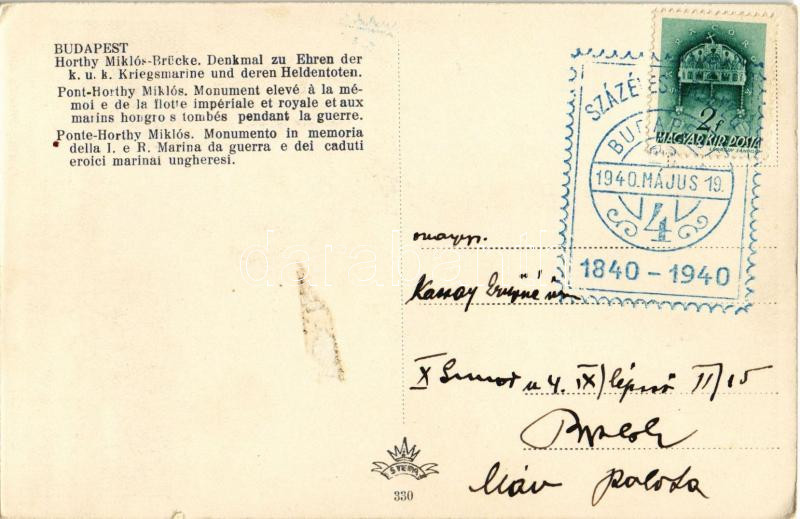 BUDAPEST
Horthy Miklós-Brücke. Denkmal zu Ehren der
k. u. k. Kriegsmarine und deren Heldentoten.
Pont-Horthy Miklós. Monument elevé à la mé-
moi e de la flotte impériale et royale et aux
marins hongro s tombés pendant la guerre.
Ponte-Horthy Miklós. Monumento in memoria
della I. e R. Marina da guerra e dei caduti
eroici marinai ungheresi.
2f
MAGYAR KIR. POSTA
SZÁZÉVES
BUDAPEST
1940. MÁJUS 19.
4
1840 - 1940
Kassay
X u 4. IX/lépcső II/15
Máv palota
330